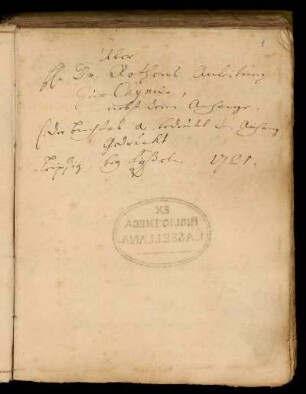 Über
Hr. Dr. Rothens Anleitung
zur Chymie,
nebst dem Anhange.
(der Buchstab a. bedeutet den Anhang
Gedruckt
Leipzig bey 1721.
EX
BIBLIOTHECA
CASSELLANA.